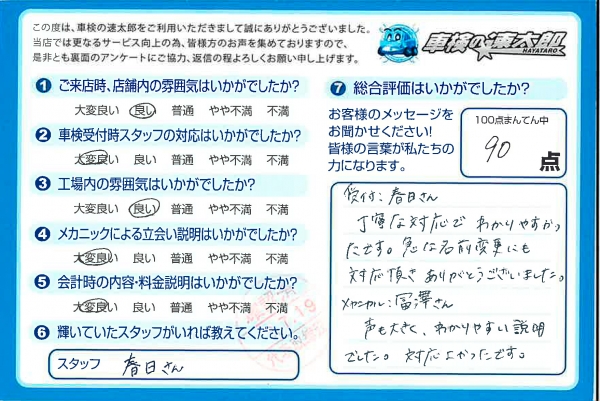 この度は、車検の速太郎をご利用いただきまして誠にありがとうございました。
当店では更なるサービス向上の為、皆様方のお声を集めておりますので、
是非とも裏面のアンケートにご協力、返信の程よろしくお願い申し上げます。
車検の速太郎
HAYATARO
1 ご来店時、店舗内の雰囲気はいかがでしたか?
大変良い 良い 普通 やや不満 不満
2 車検受付時スタッフの対応はいかがでしたか?
大変良い 良い 普通 やや不満 不満
3 工場内の雰囲気はいかがでしたか?
大変良い 良い 普通 やや不満 不満
4 メカニックによる立会い説明はいかがでしたか?
大変良い 良い 普通 やや不満 不満
5 会計時の内容・料金説明はいかがでしたか?
大変良い 良い 普通 やや不満 不満
6 輝いていたスタッフがいれば教えてください。
スタッフ 春日さん
7 総合評価はいかがでしたか?
お客様のメッセージを
お聞かせください!
皆様の言葉が私たちの
力になります。
100点まんてん中
90 点
受付:春日さん
丁寧な対応で わかりやすかっ
たです。急な名前変更にも
対応頂き ありがとうございました。
メカニカル:冨澤さん
声も大きく、わかりやすい説明
でした。対応よかったです。